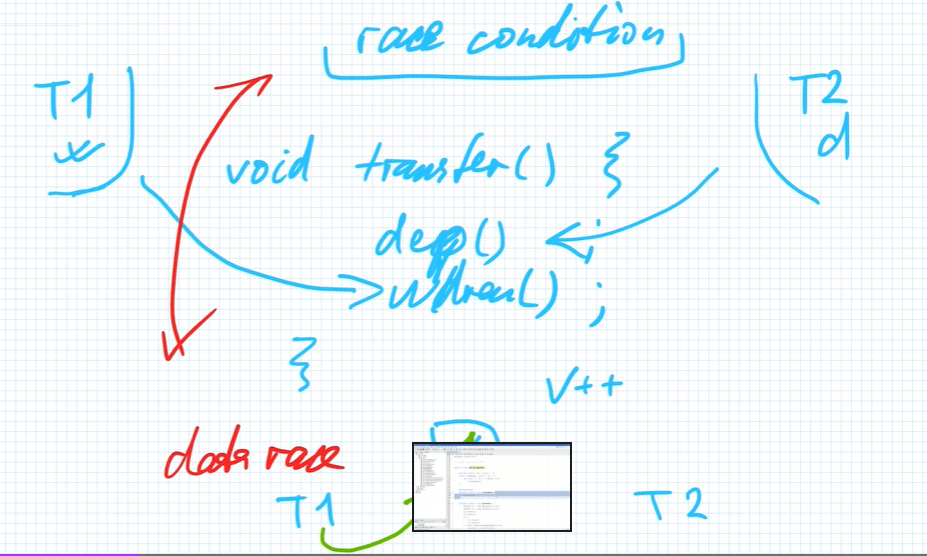 race condition
T1
T2
w
d
void transfer() }
dep() ;
wdraw() ;
}
v++
data race
T1
T2